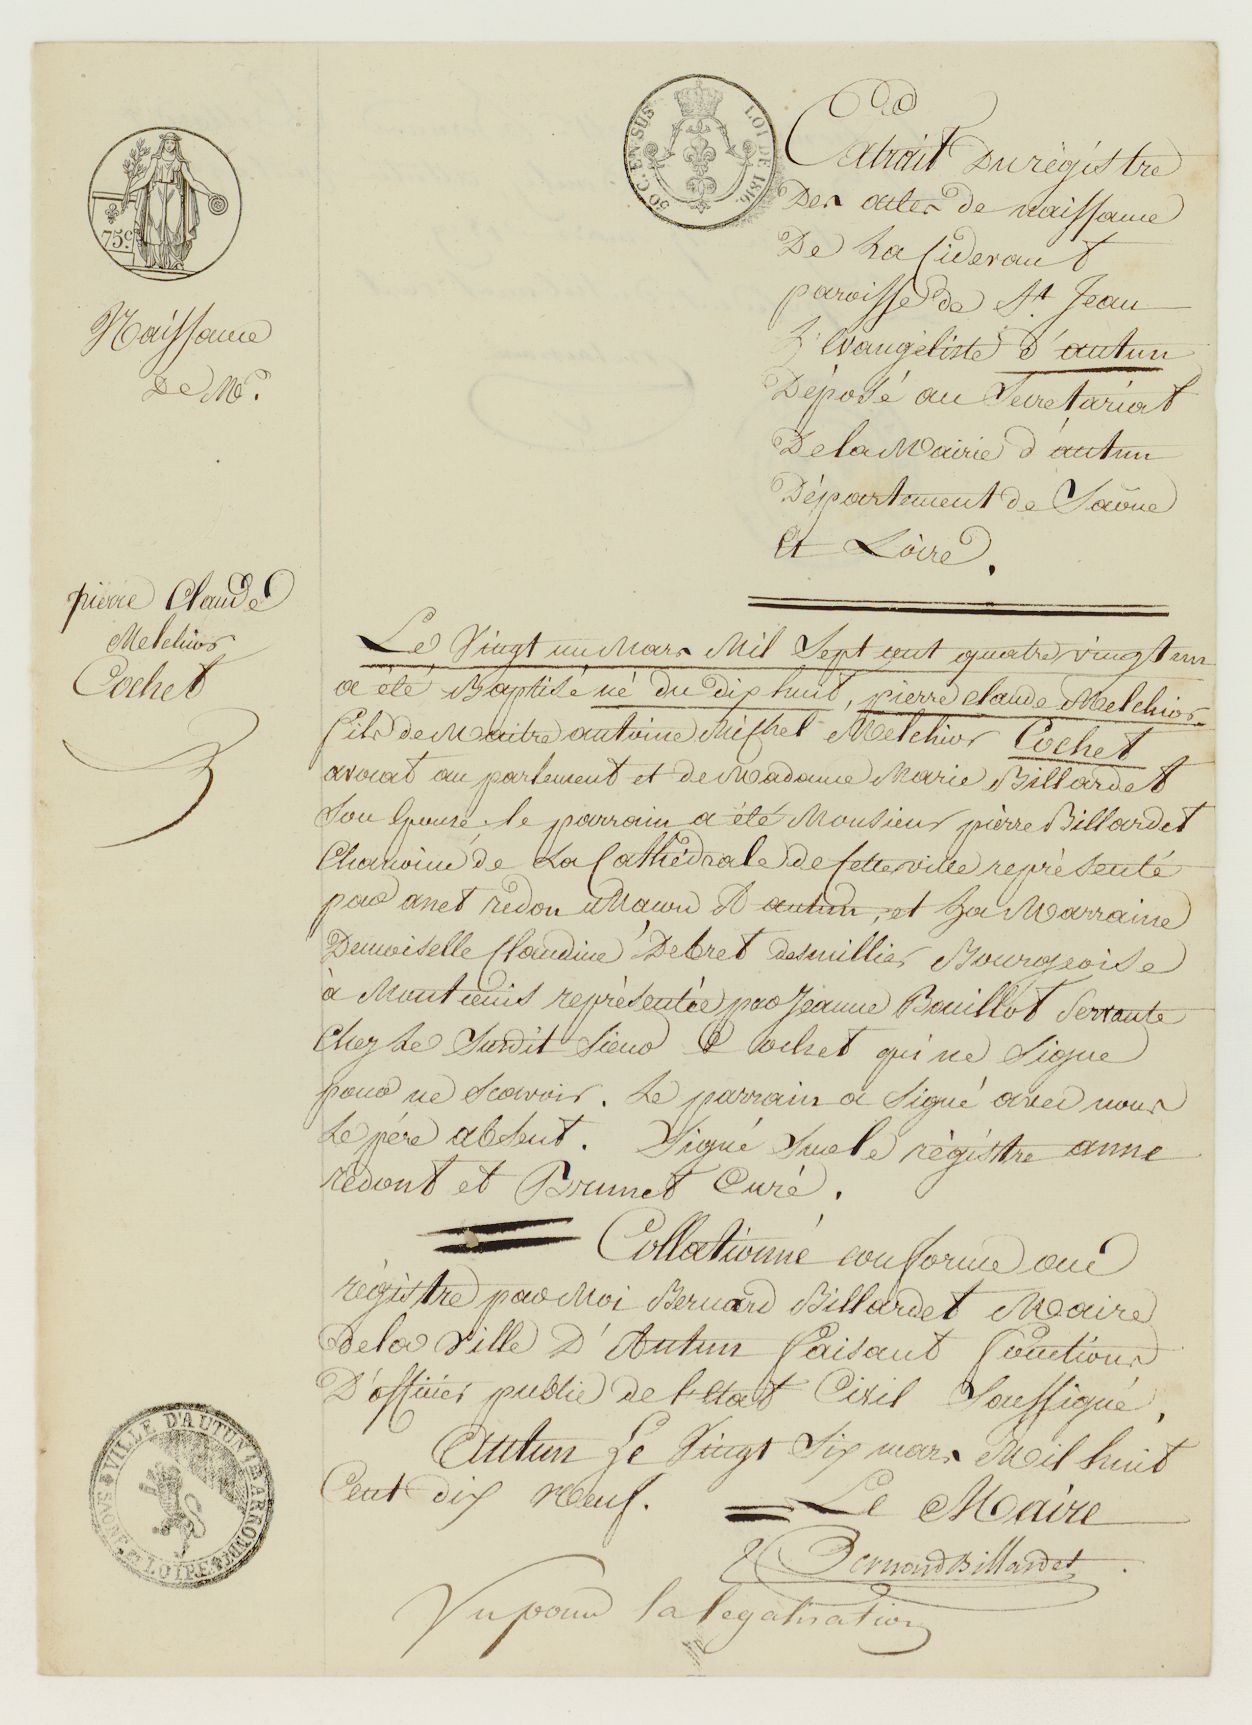 50 C. EN SUS
LOI DE 1816.
75 c
Extrait Du régistre
Des actes de naissance
De La Cidevant
paroisse de St. Jean
L'Evangeliste d'autun
Déposé au Secretariat
De la Mairie d'autun
Département de Saône
Et Loire.
Naissance
De Mr.
pierre Claude
Melchior
Cochet
Le Vingt un Mars Mil Sept cent quatre vingt un
a été Baptisé né du dix huit, pierre Claude Melchior
fils de Maitre antoine Michel Melchior Cochet
avocat au parlement et de Madame Marie Billardet
Son Epouse. le parrain a été Monsieur pierre Billardet
Chanoine de La Cathédrale de Cette ville représenté
par anet redon d'autun, et La Marraine
Demoiselle Claudine Debret desmillier Bourgeoise
à Montcenis représentée par Jeanne Bouillot Servante
Chez Le Susdit Sieur Cochet qui ne Signe
pour ne Scavoir. Le parrain a Signé avec nous
Le pére absent. Signé Sur le régistre anne
redont et Brunet Curé.
Collationné conforme au
régistre par Moi Bernard Billardet Maire
de la Ville D'Autun faisant fonctions
D'officier public de l'etat Civil Soussigné,
Autun Le Vingt Six mars Mil huit
Cent dix Neuf. Le Maire
Bernard Billardet
Vu pour la legalisation
VILLE D'AUTUN
SAONE et LOIRE